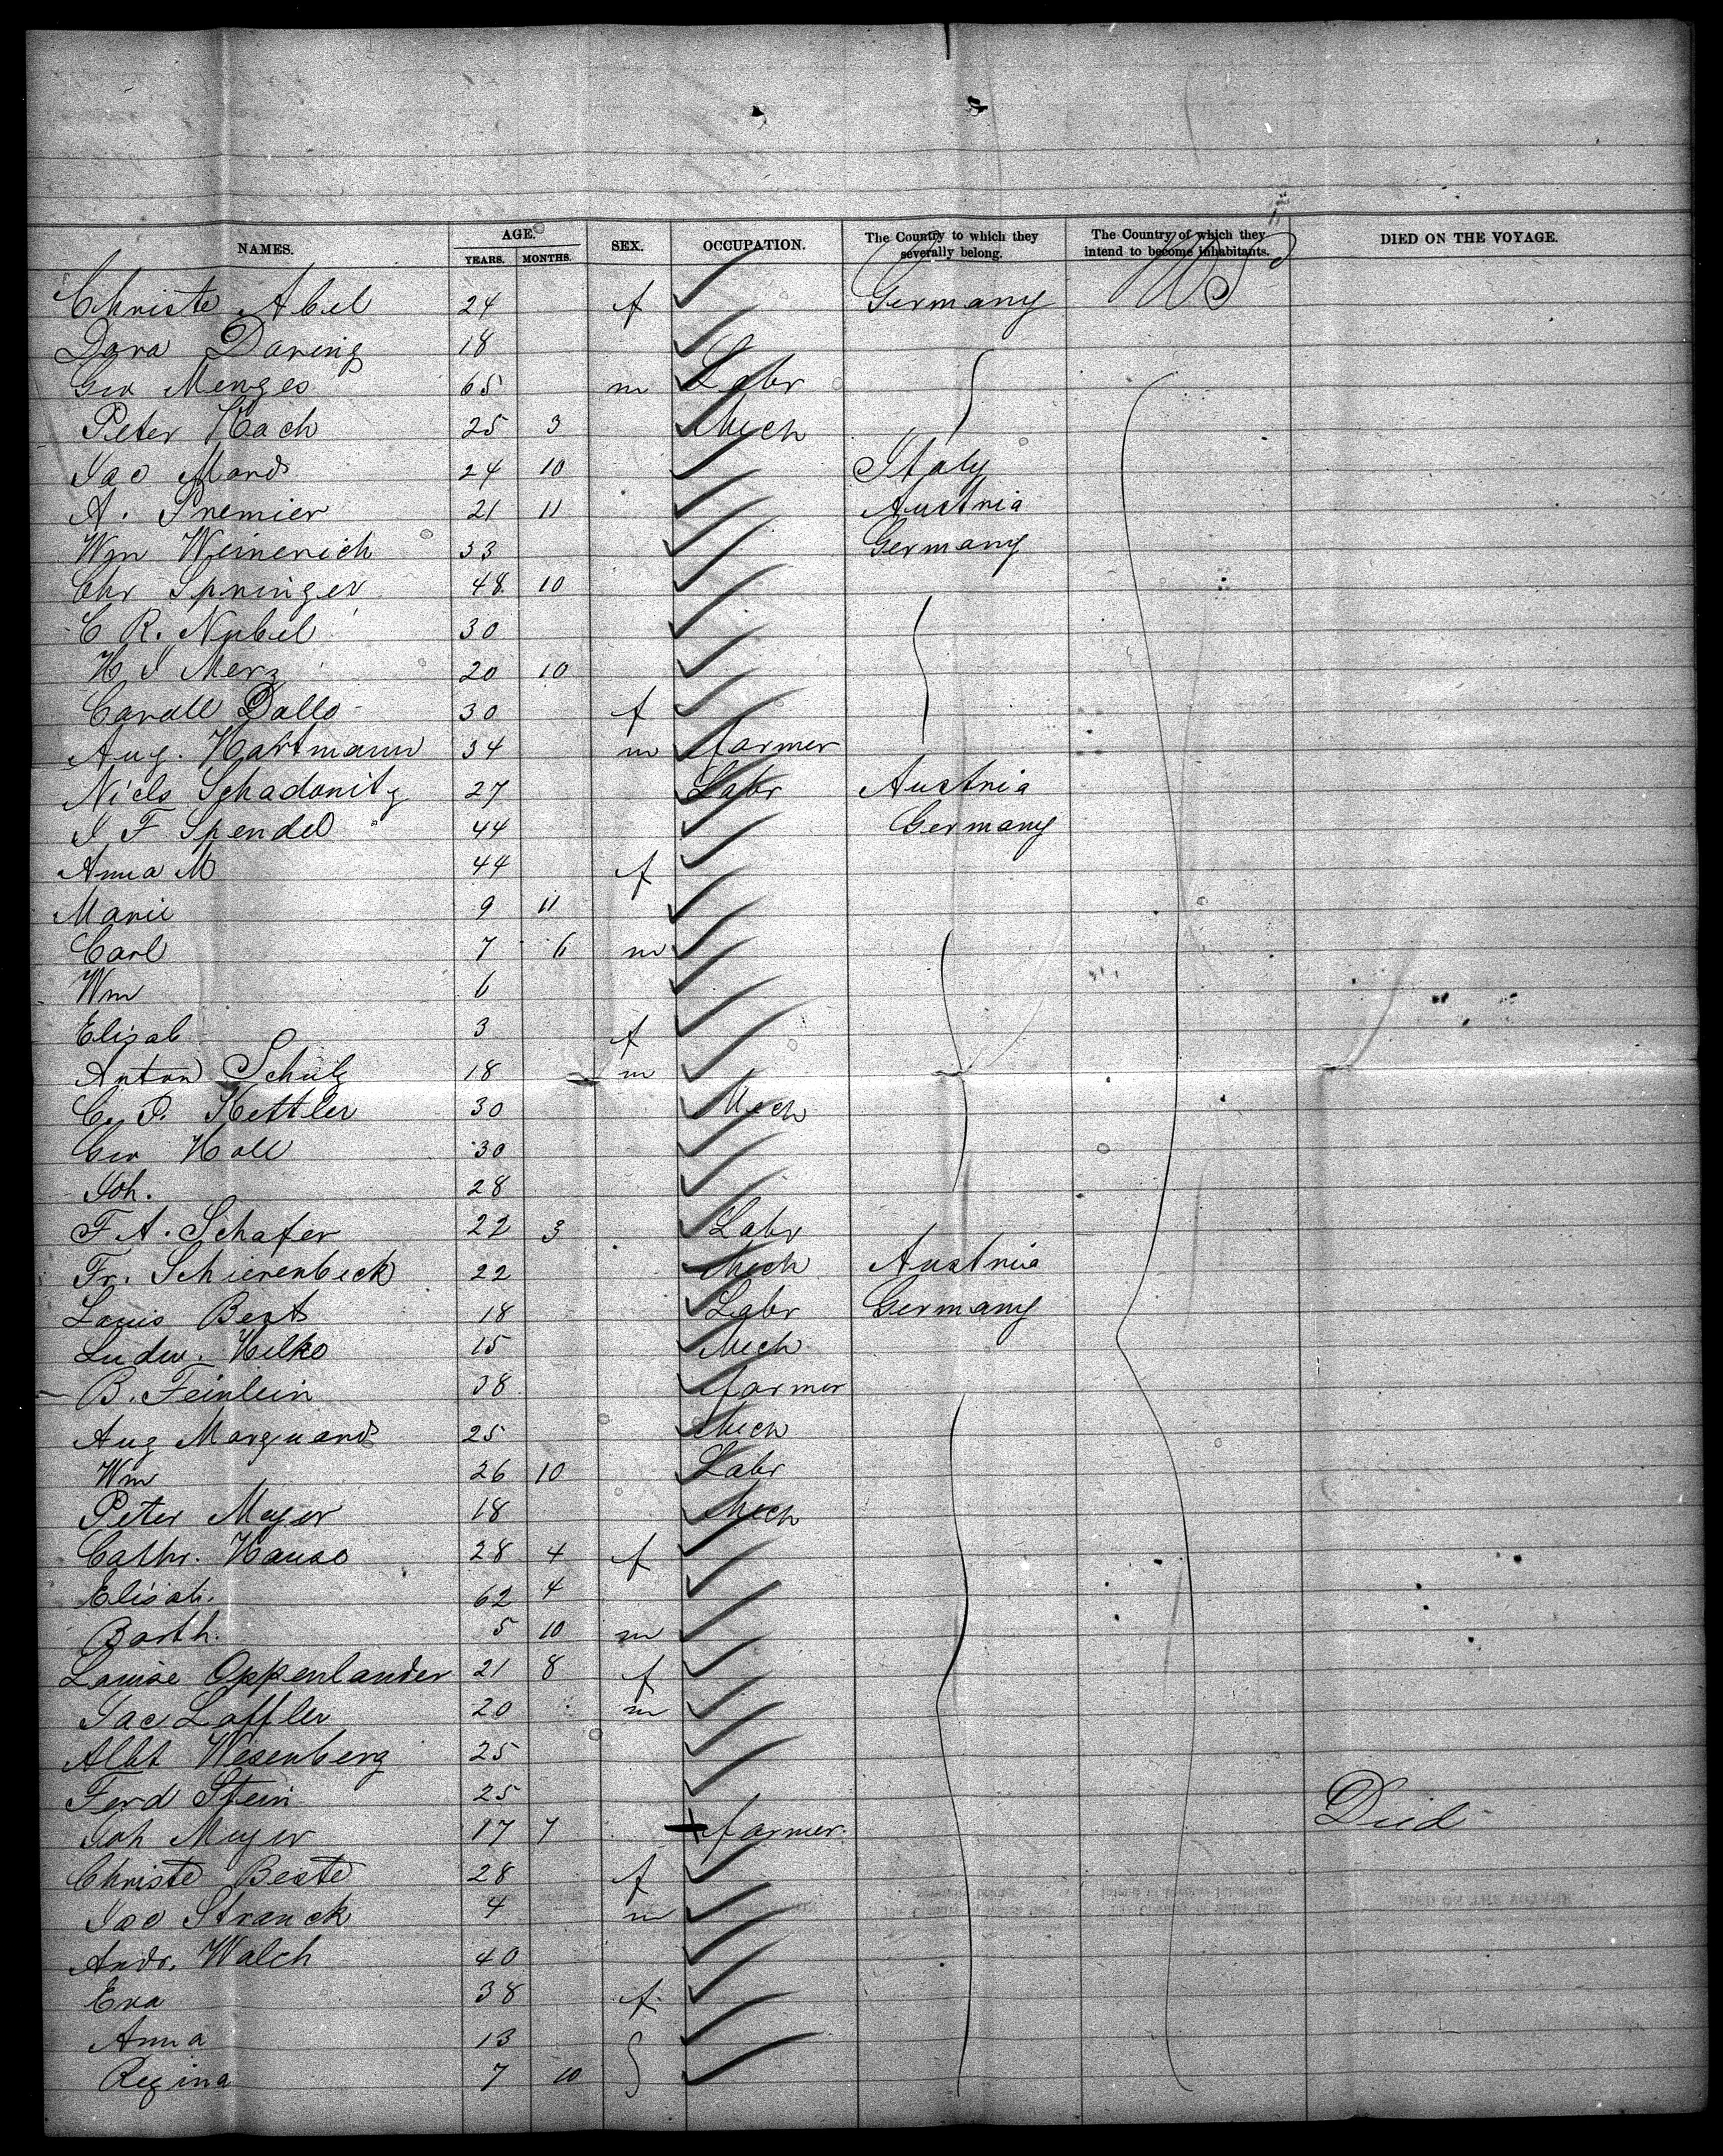 NAMES. AGE. YEARS. MONTHS. SEX. OCCUPATION. The Country to which they severally belong. The Country of which they intend to become inhabitants. DIED ON THE VOYAGE.
Christe Abel 24 f Germany US
Dora Daring 18
Geo Menges 65 m Labr
Peter Hach 25 3 Mech
Jac Mard 24 10 Italy
A. Premier 21 11 Austria
Wm Weinerich 33 Germany
Chr Springer 48 10
C R. Nubel 30
H J Merz 20 10
Dallo 30 f
Aug. Hartmann 34 m farmer
Niels Schadonitz 27 Labr Austria
J F Spendel 44 Germany
Anna M 44 f
Marie 9 11
Carl 7 6 m
Wm 6
Elisab 3 f
Anton Schulz 18 m
C. P. Kettler 30 Mech
Geo Holl 30
Joh. 28
F A. Schafer 22 3 Labr
Fr. Schierenbeck 22 Mech Austria
Louis Bert 18 Labr Germany
Ludw. Hilko 15 Mech
B. Feinlein 38 farmer
Aug Marquard 25 Mech
Wm 26 10 Labr
Peter Meyer 18 Mech
Cathr. Hause 28 4 f
Elisab. 62 4
Barth. 5 10 m
Louise Oppenlander 21 8 f
Jac Loffler 20 m
Albt Wesenberg 25
Ferd Stein 25
Joh Meyer 17 7 farmer Died
Christe Beste 28 f
Jac Stranck 4 m
Andr. Walch 40
Eva 38 f
Anna 13
Regina 7 10